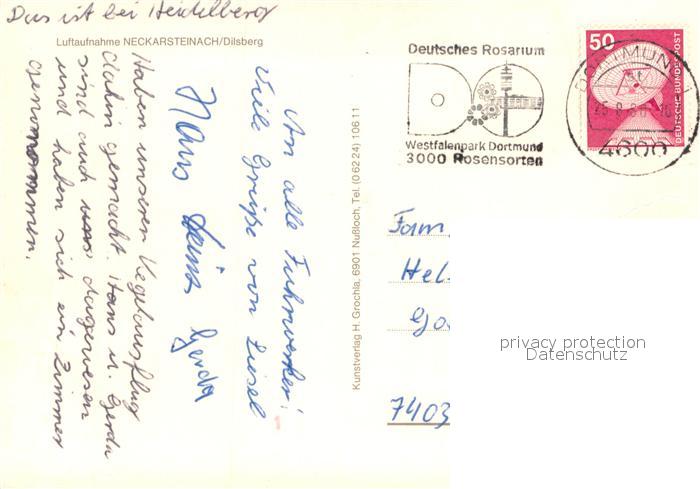 Das ist bei Heidelberg
Luftaufnahme NECKARSTEINACH/Dilsberg
Haben unseren Kegelausflug
dahin gemacht. Hans u. Gerda
sind auch dagewesen
und haben sich ein Zimmer
genommen.
An alle Fuhrwerker!
Viele Grüße von Liesel
Hans Heinz Gerda
Kunstverlag H. Grochla, 6901 Nußloch, Tel. (06224) 10611
Deutsches Rosarium
DO
Westfalenpark Dortmund
3000 Rosensorten
50
DEUTSCHE BUNDESPOST
DORTMUND 1
4600
Fam.
Hel
7403
privacy protection
Datenschutz